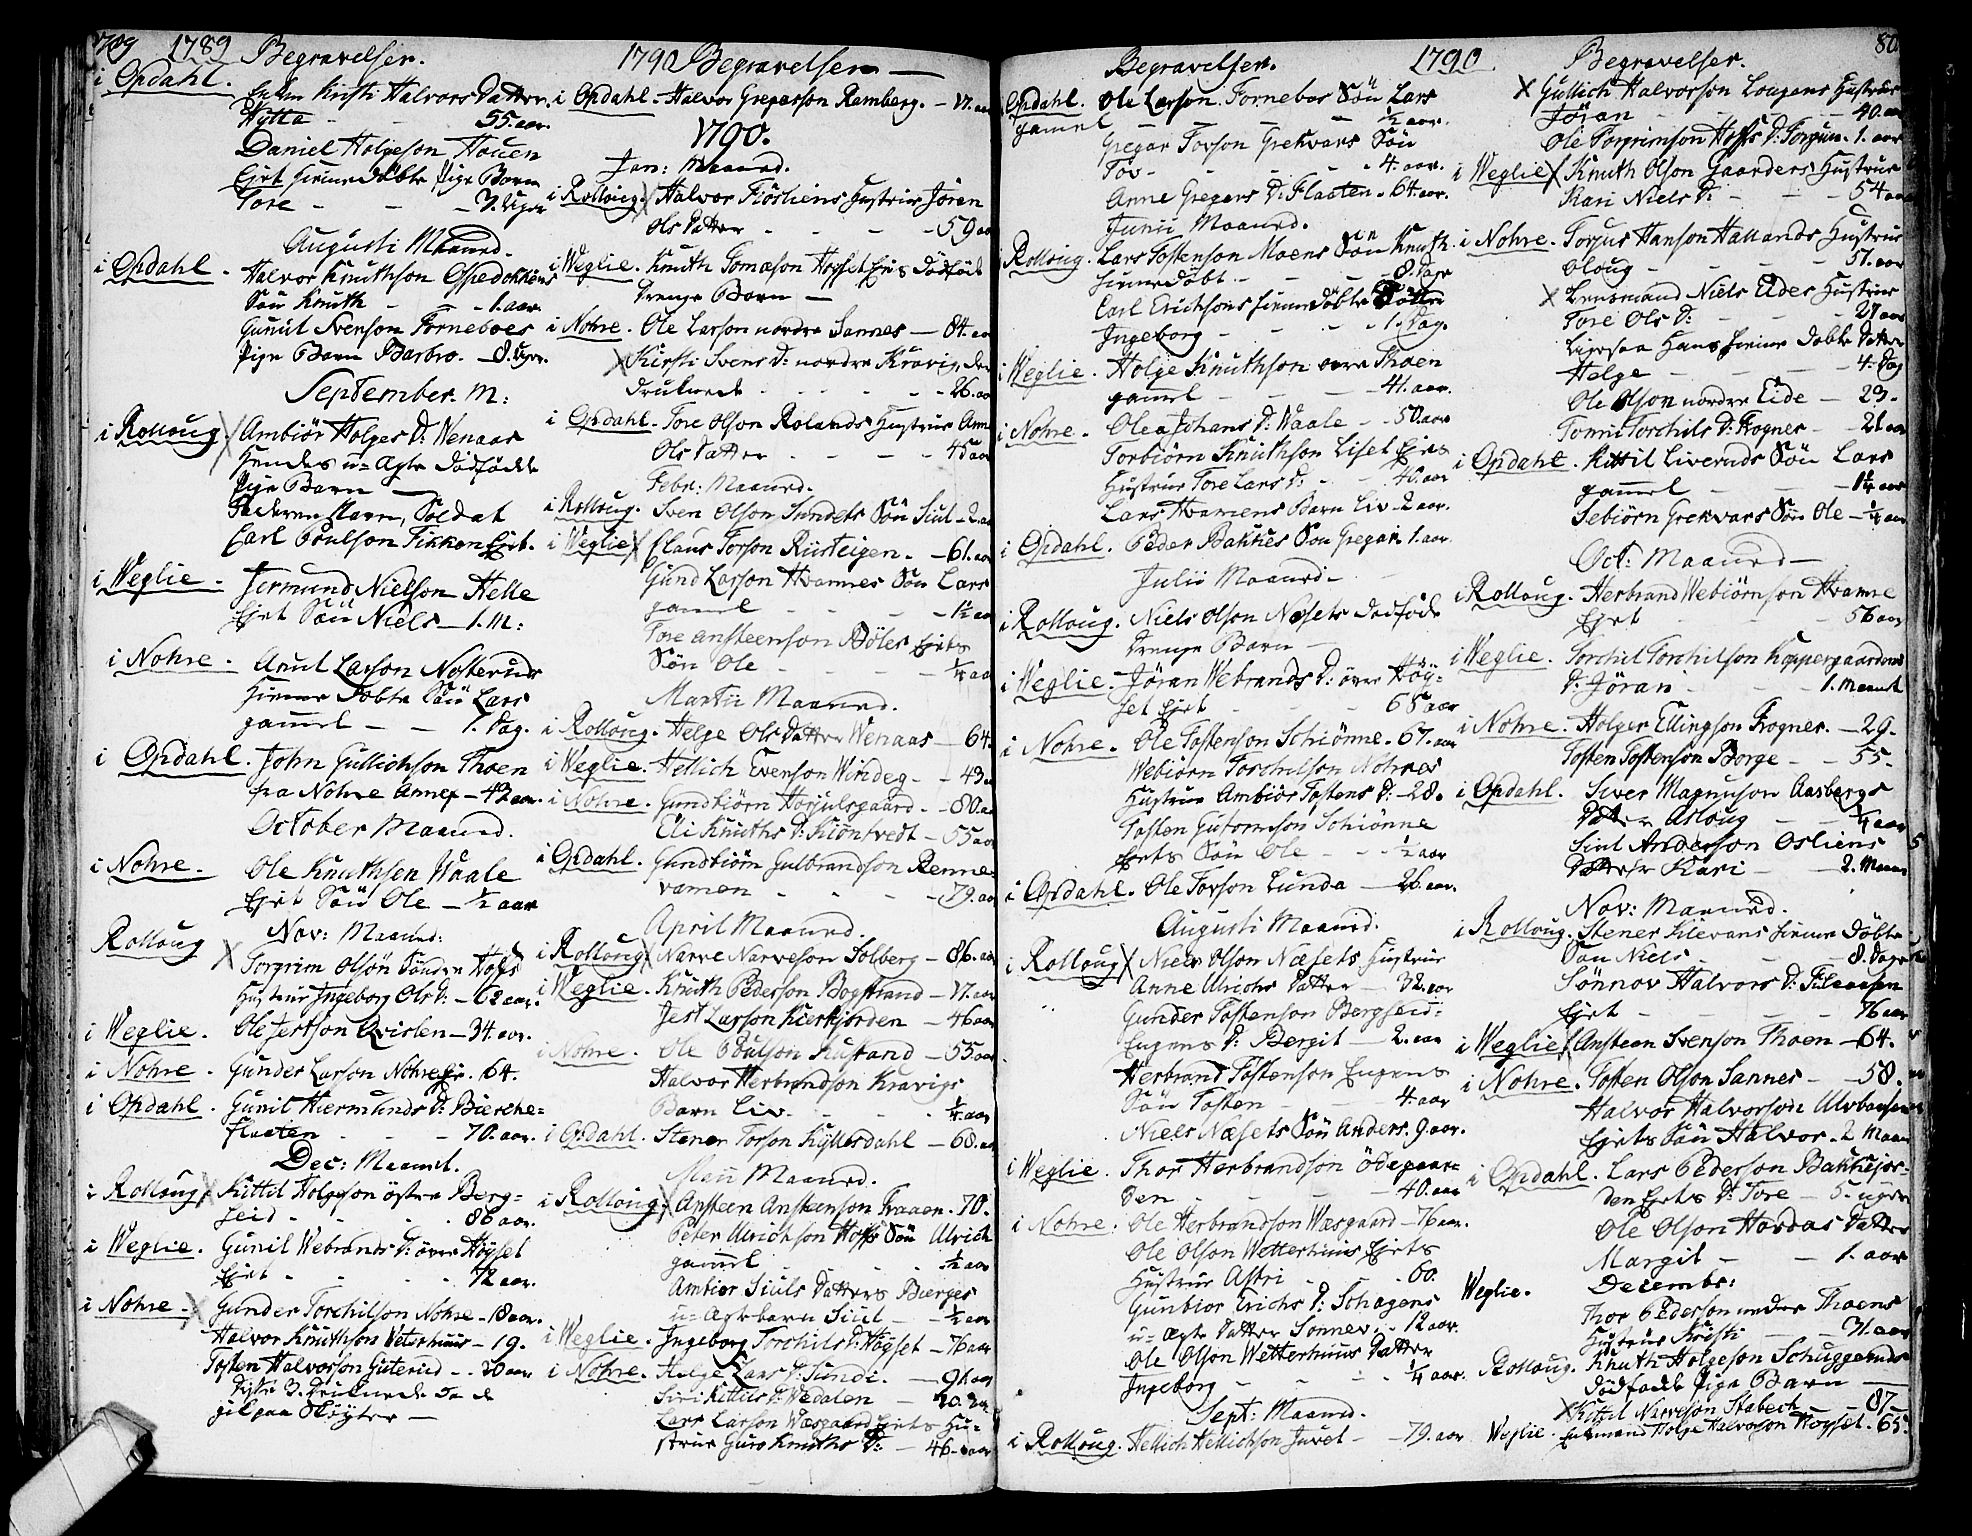 1789 Begravelser.
i Opdahl.
Enken Kristi Halvors Datter
Hytta - - 55. aar.
Daniel Holgeson Houen
Ejet hiemedöbte Pige Barn
Tore - - - 3. Uger
Augusti Maaned.
i Opdahl. Halvor Knuthson
Sön Knuth - - 1. aar.
Gunul Svenson Forneboes
Pige Barn Barbro. - 8. Uger.
September. M:
i Rolloug. Ambiör Holges D: Wenaas
Hendes u-Ægte dödfödte
Pige Barn
Faderen Soldat
Carl Poulson Fikken Ejet.
i Weglie. Jermund Nielson Helle
Ejet Sön Niels - 1. M:
i Nohre. Anul Larson Nosteruds
hieme Döbte Sön Lars
gamel - - 1. Dag.
i Opdahl. John Gullichson Thoen
fra Nohre Annex - 43 aar.
October Maaned.
i Nohre. Ole Knuthsen Waale
Ejet Sön Ole - ½ aar
Nov: Maaned:
Rolloug Torgrim Olsön Söndre Hofs
Hustrue Ingeborg Ols D: - 62 aar.
i Weglie. Ole Jertson Qvislen - 34 aar.
i Nohre. Gunder Larson Nohre Ejr. 64.
i Opdahl. Gunil Hiermunds D: Bierche=
flaaten - - 70. aar.
Dec: Maaned.
i Rolloug Kittil Holgeson östre Berg=
seid - - - 86 aar.
i Weglie. Gunil Webrands D: över Höyset
Ejet - - - 72 aar.
i Nohre - Gunder Torchilson Nohre - 18 aar.
Halvor Knuthson Veterhuus - 19.
Tosten Halvorson Guterud - - 20 aar.
Disse 3. Druknede da de
gik paa Skøyter -
1790 Begravelser -
i Opdahl - Halvor Gregarson Ramberg. - 17. aar
1790.
Jan: Maaned.
i Rolloug. Halvor Fiösliens Hustrue Jören
Ols Datter - - - 59 aar
i Weglie. Knuth Tomæson Höyset Ejrs Dödföde
Drenge Barn -
i Nohre. Ole Larson nordre Sannes - 84. aar
Kirsti Svens D: nordre Kravig, der
Druknede - - - - 26. aar
i Opdahl. Tore Olson Rolands Hustrue Anne
Ols Datter - - - 45 aar
Febr: Maaned.
i Rolloug. Sven Olson Sundets Sön Siul - 2. aar
i Weglie Claus Torson Ruisteigen. - 61. aar
Gund Larson Hvamnes Sön Lars
gamel - - - 1½ aar
Tore Ansteenson Böles Ejets
Sön Ole - - - ¼ aar
Martii Maaned.
i Rolloug. Helge Ols Datter Wenaas - 64.
i Weglie. Hellich Evenson Windeg - - 43
i Nohre. Gundbiörn Horjulsgaard. - 80. aar
Eli Knuths D: Kiöntvedt - 55 aar
i Opdahl. Gundbiörn Gulbrandson Renne-
vamen - - - 79. aar
April Maaned.
i Rolloug Narve Narveson Solberg - 86. aar
i Weglie. Knuth Pederson Bogstrand - 17. aar
Jest Larson Kierkjorden - 46 aar
i Nohre. Ole Poulson Rustand - 55 aar
Halvor Herbrandson Kravigs
Barn Liv. - - - ¼ aar
i Opdahl. Stener Torson Kyllesdahl - 68. aar
Maii Maaned.
i Rolloug Ansteen Ansteenson Fraaen. 70.
Peter Ulrichson Hofs Sön Ulrich
gamel - - - ½ aar
Ambiör Siuls Datters Bierges
u-Ægte barn Siul - - ½ aar
i Weglie. Ingeborg Torchils D: Höyset - 76 aar
i Nohre. Helge Lars D: Sunde. - 91. aar
Siri Kittils D: Wedalen - 20. aar
Lars Larson Wæsgaard Ejets Hu-
strue Guro Knuths D: - 46. aar
Begravelser. 1790
Opdahl. Ole Larson Forneboe Sön Lars
gamel - - - - ½ aar.
Gregar Torson Grekvars Sön
Tov - - - - 4. aar.
Anne Gregars D: Flaaten. 64. aar.
Junii Maaned.
i Rolloug. Lars Tostenson Moens Sön Knuth.
hiemedöbt - - - 8. Dage
Carl Erichsons hiemedöbte Datter
Ingeborg - - - 1. Dag.
i Weglie. Holge Knuthson øvre Thoen
gamel - - - 41. aar.
i Nohre. Olea Johans D: Waale - 50. aar
Torbiörn Knuthson Liset Ejets
Hustrue Tore Lars D: - - 40. aar
Lars Hvamens Barn Liv - 2. aar.
i Opdahl. Peder Bakkes Sön Gregar. 1. aar.
Julii Maaned -
i Rolloug. Niels Olson Nøsets Dödföde
Drenge Barn -
i Weglie. Jöran Webrands D: över Höy=
set Ejet - - 65 aar
i Nohre. Ole Tostenson Schiönne. 67. aar
Webiörn Torchilson Nohres
Hustrue Ambiör Tostens D: - 28.
Tosten Gutormson Schiönne
Ejets Sön Ole - - ½ aar
i Opdahl. Ole Torson Lunda - 26. aar.
Augusti Maaned.
i Rolloug Niels Olson Næsets Hustrue
Anne Ulrichs Datter - 32. aar
Gunder Tostenson Bergseid=
Eugens D: Bergit - 2. aar
Herbrand Tostenson Eugens
Sön Tosten - - - 4. aar
Niels Næsets Sön Anders. 9. aar.
i Weglie. Thor Herbrandson Ödegaar=
den - - - 40. aar
i Nohre. Ole Herbrandson Wæsgaard - 76 aar.
Ole Olson Wetterhuus Ejets
Hustrue Astri - - 60.
Gunbior Erichs D: Schagens
u-Ægte Datter Sonnev. - 12 aar.
Ole Olson Wetterhuus Datter
Ingeborg - - - ¼ aar.
Sept: Maaned.
i Rolloug. Hellich Hellichson Juvel - - 79. aar
Begravelser. 80.
Gullich Halvorson Lougens Hustrue
Jöran - - - 40. aar
Ole Torgrimson Hofs D: Torgun. 1. aar
i Weglie Knuth Olson Gaarders Hustrue
Kari Niels D: - - - 54 aar
i Nohre. Torjus Hanson Hallands Hustrue
Oloug - - - - 51. aar
Lensmand Niels Eides Hustrue
Tore Ols D: - - - 27 aar
Ligesaa Hans hieme döbte Datter
Helge - - - - 4. Dag
Ole Olson nordre Eide - 23.
Tonni Torchils D: Frogner - 21 aar
i Opdahl. Kittil Liveruds Sön Lars
gamel - - - 1¼ aar
Sebiörn Grekvars Sön Ole - ¼ aar
Oct: Maaned -
i Rolloug. Herbrand Webiörnson Hvamre
Ejet - - - 56 aar
i Weglie. Torchil Torchilson Koppergaardens
D: Jöran - - - 1. Maaned
i Nohre. Holger Ellingson Frogner. - 29.
Tosten Tostenson Borge - - 55.
i Opdahl. Siver Magnuson Aasbergs
Datter Asloug - - ¼ aar
Siul Anderson Osliens
Datter Kari - - 2. Maan
Nov: Maaned.
i Rolloug. Stener Klevans hieme Döbte
Sön Niels - - - 8. Dage
Sönnov Halvors D: Filaasen
Ejet - - - 76 aar
i Weglie Ansteen Svenson Thoen - 64.
i Nohre. Tosten Olson Sannes - - 58.
Halvor Halvorson
Ejets Sön Halvor. 2 Maan
i Opdahl. Lars Pederson Bakkejor=
den Ejets D: Tore - 5. Uger
Ole Olson Hordas Datter
Margit - - - 1. aar
Decembr:
Weglie. Thor Pederson nedre Thoens
Hustrue Kristi - - 31. aar
Rolloug. Knuth Holgeson Schuggeruds
dödfødte Pige Barn -
Kittil Narveson Stabech - - 87.
Weglie. Enkemand Holge Halvorson Höyset. 65.